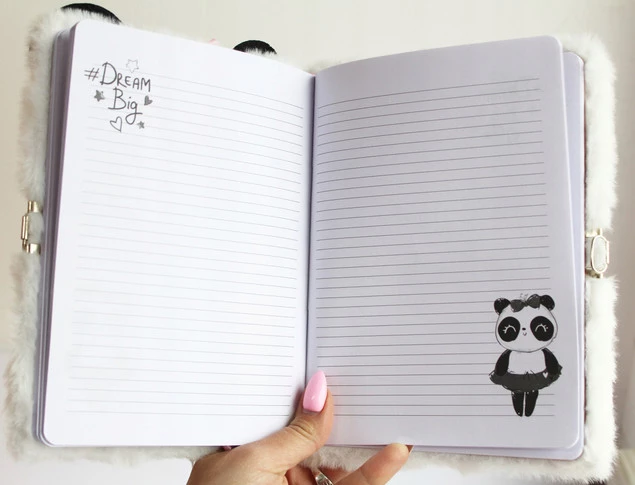 #DREAM
Big